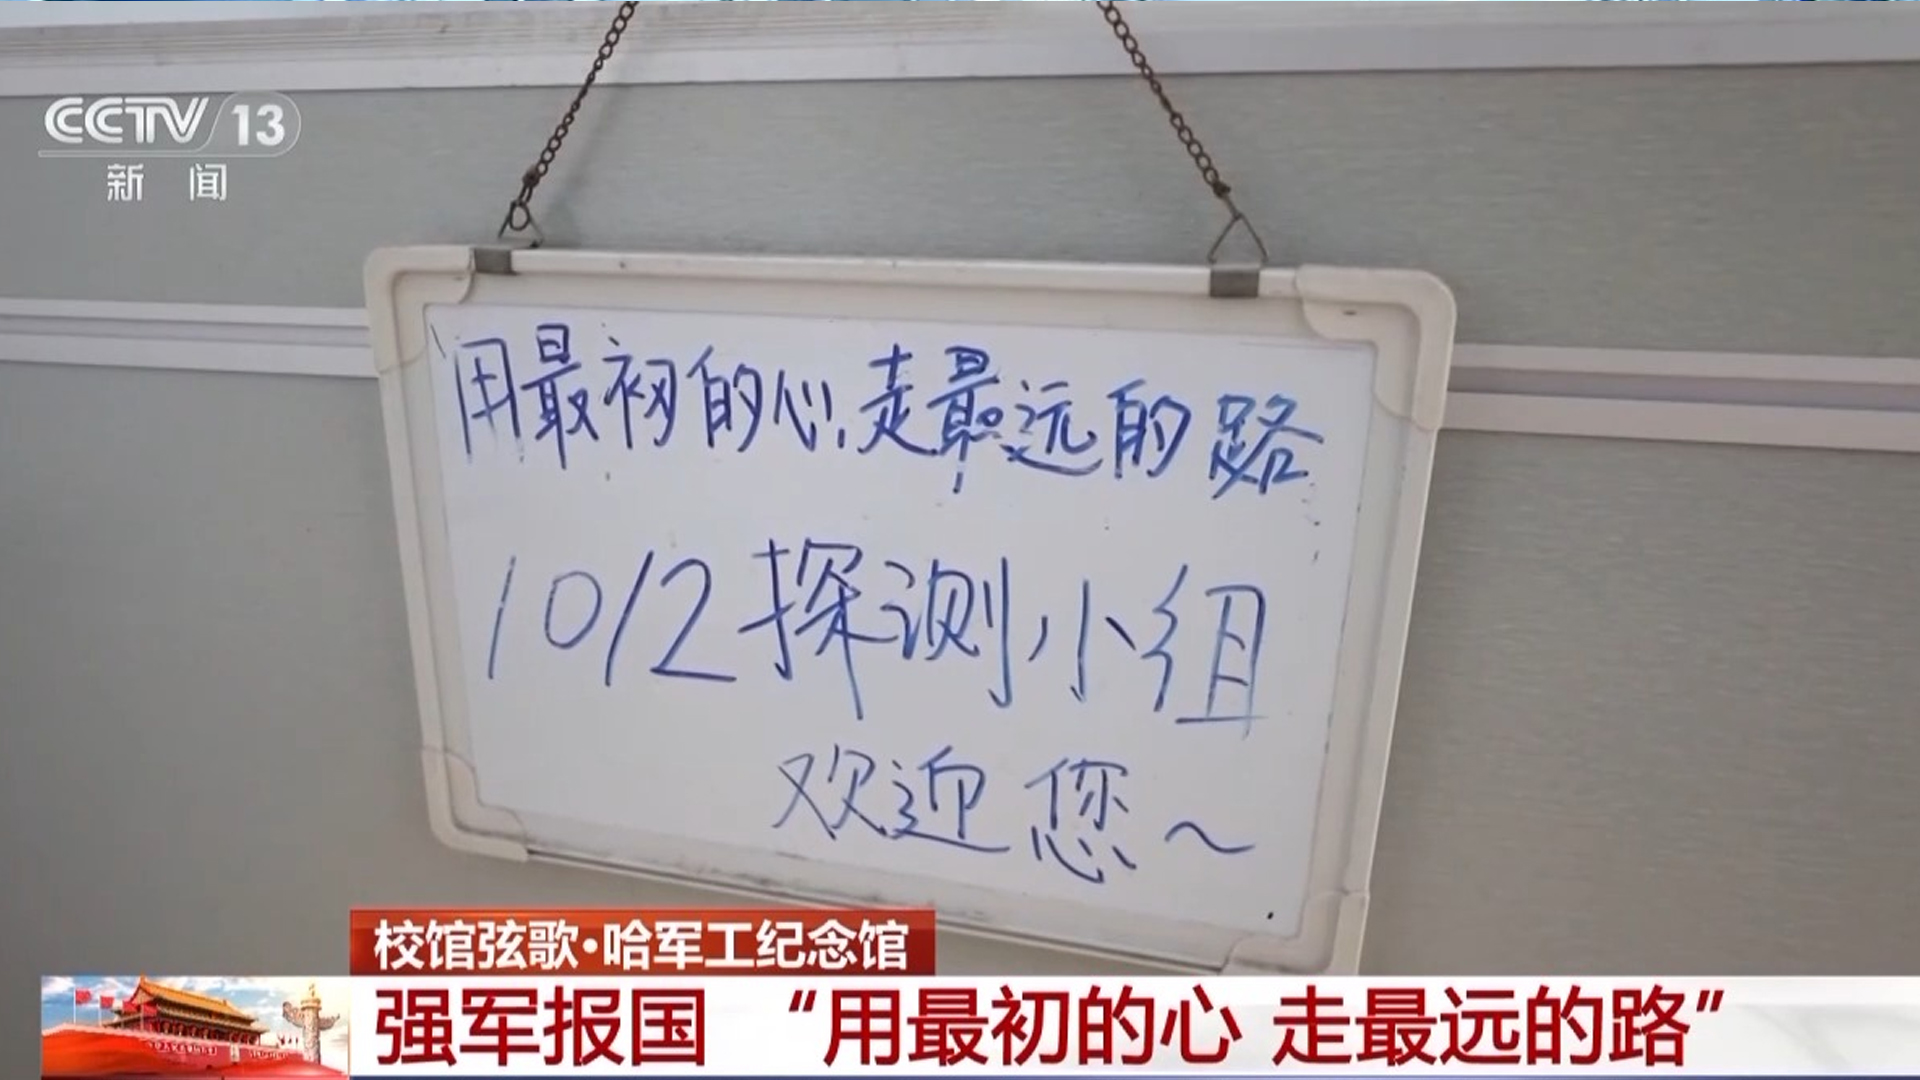 CCTV 13
新闻
用最初的心,走最远的路
1012探测小组
欢迎您~
校馆弦歌·哈军工纪念馆
强军报国 “用最初的心 走最远的路”